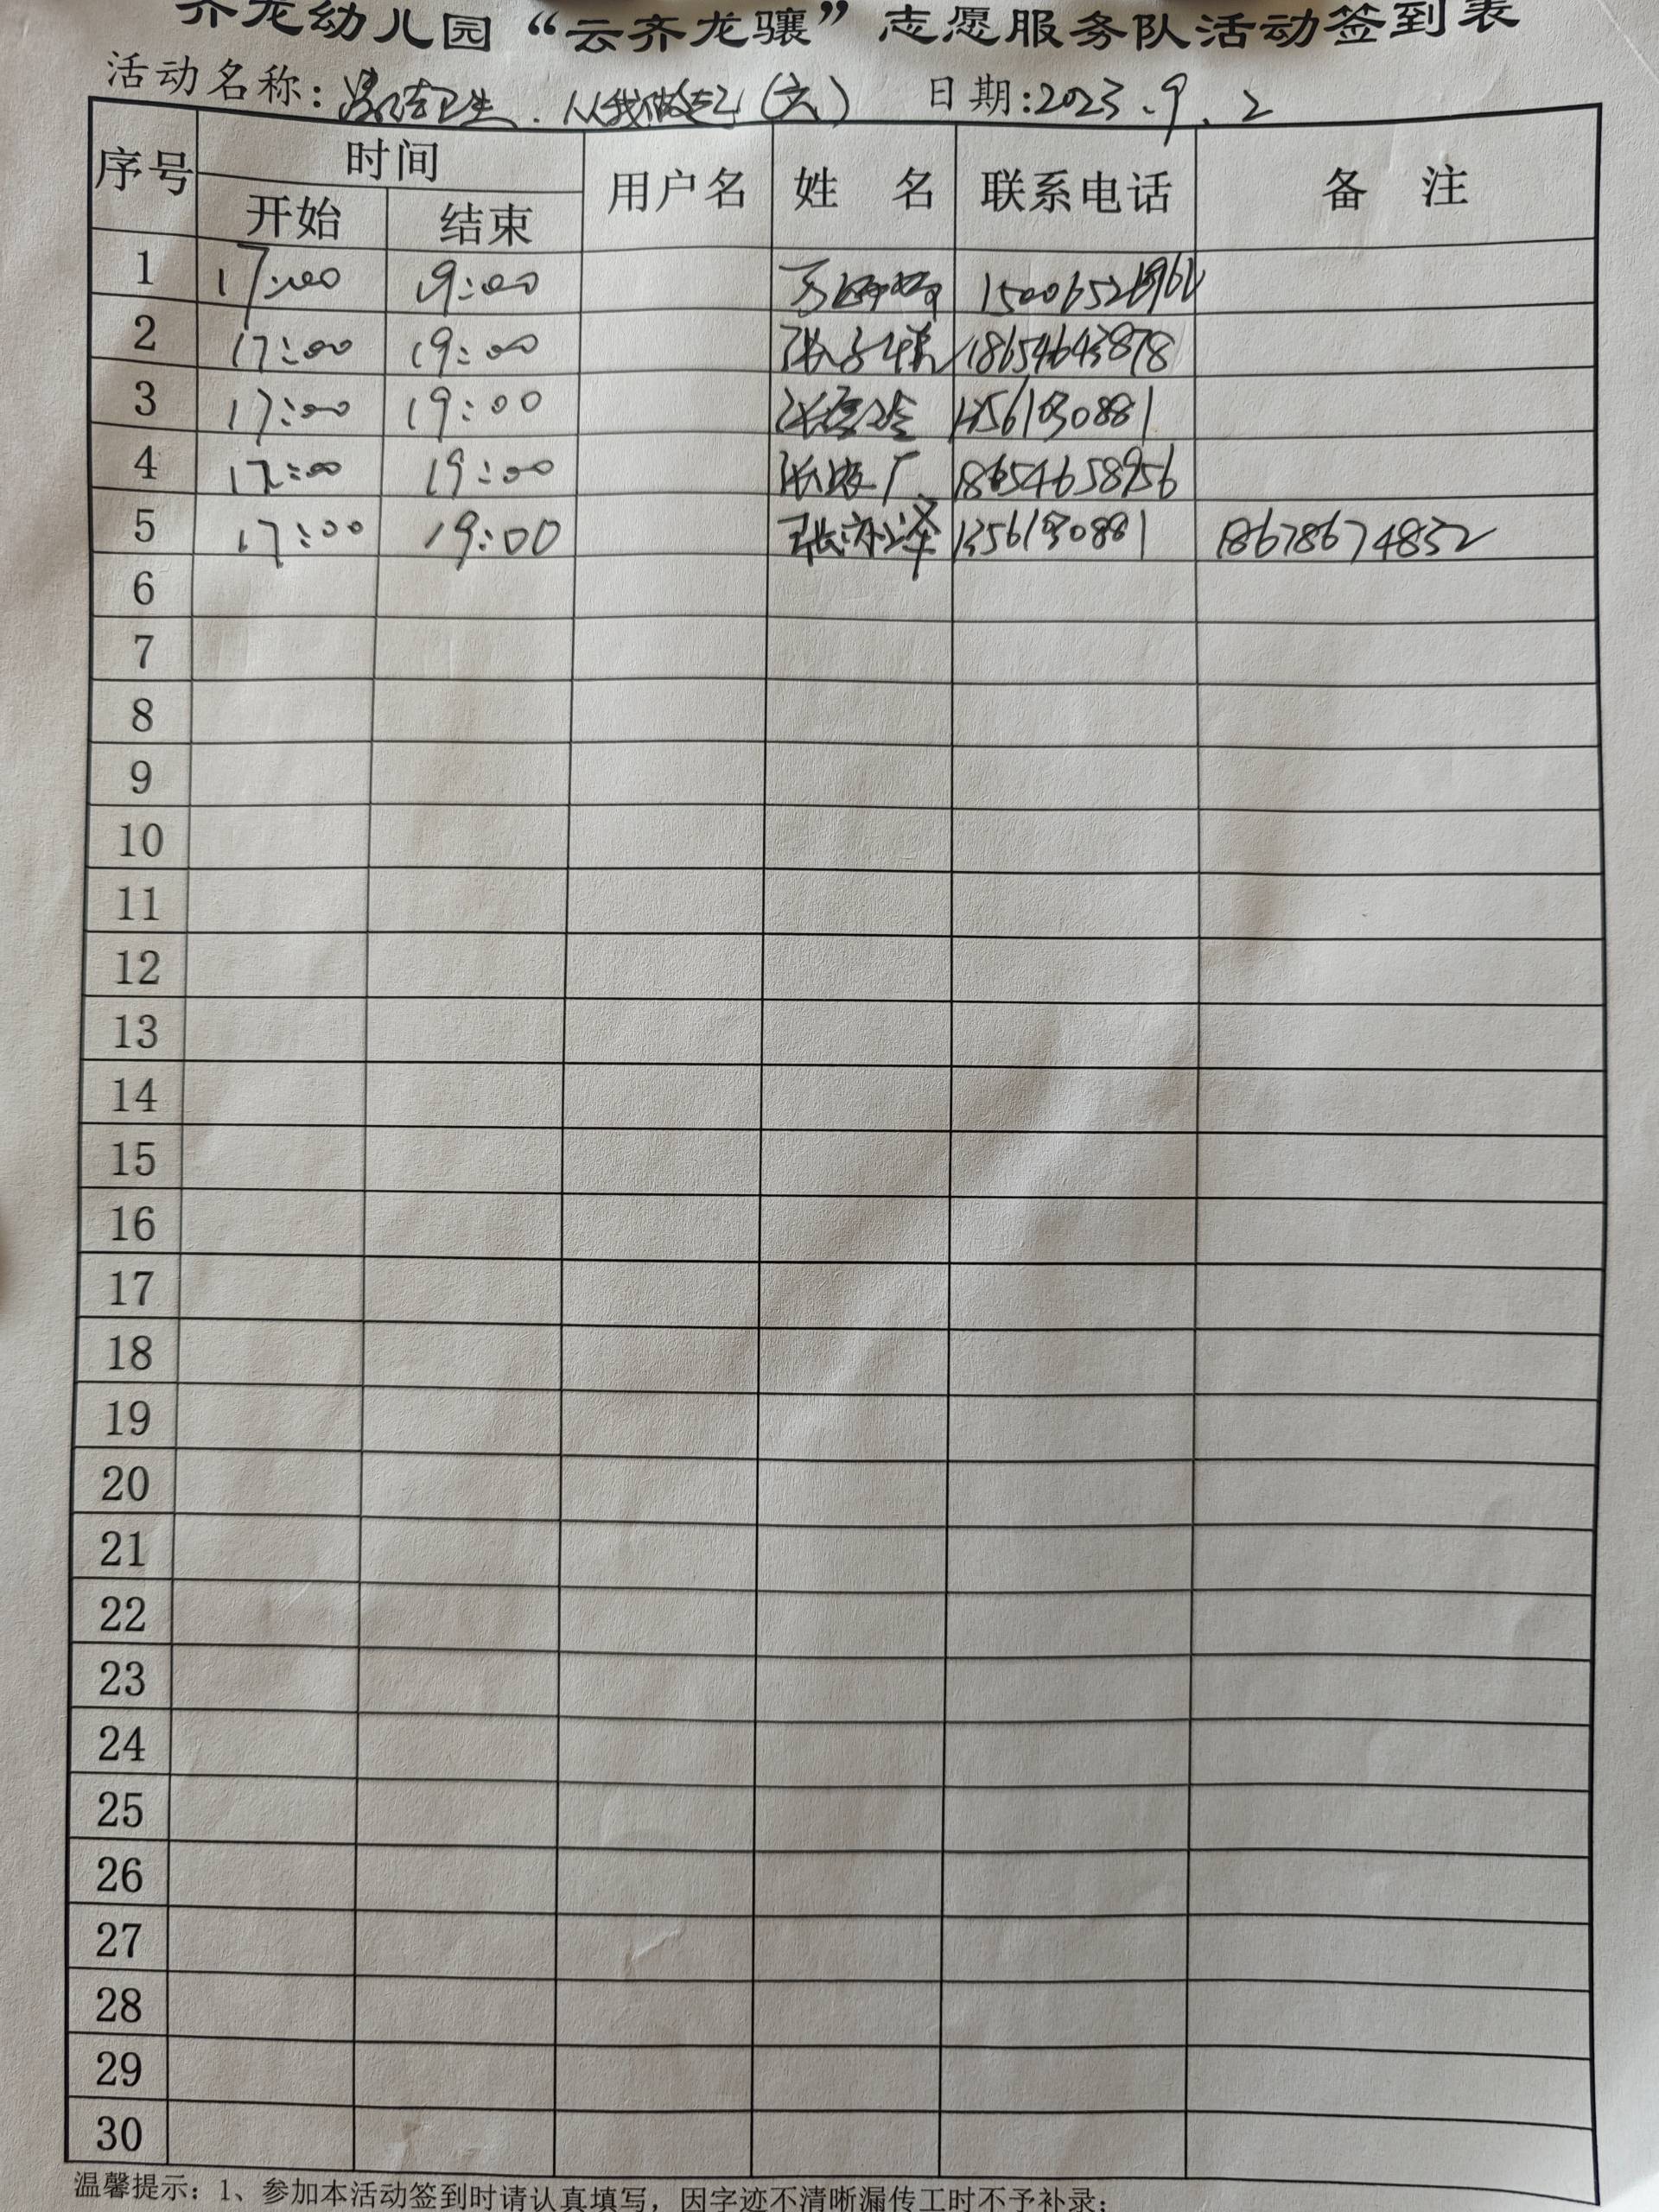 齐龙幼儿园“云齐龙骧”志愿服务队活动签到表
活动名称：清洁卫生.从我做起（六） 日期：2023.9.2
序号 时间 用户名 姓 名 联系电话 备 注
开始 结束
1 17:00 19:00
2 17:00 19:00 张子 18654643878
3 17:00 19:00 张
4 17:00 19:00 张 厂 18654658956
5 17:00 19:00 张 泽 18678674832
6
7
8
9
10
11
12
13
14
15
16
17
18
19
20
21
22
23
24
25
26
27
28
29
30
温馨提示：1、参加本活动签到时请认真填写，因字迹不清晰漏传工时不予补录；